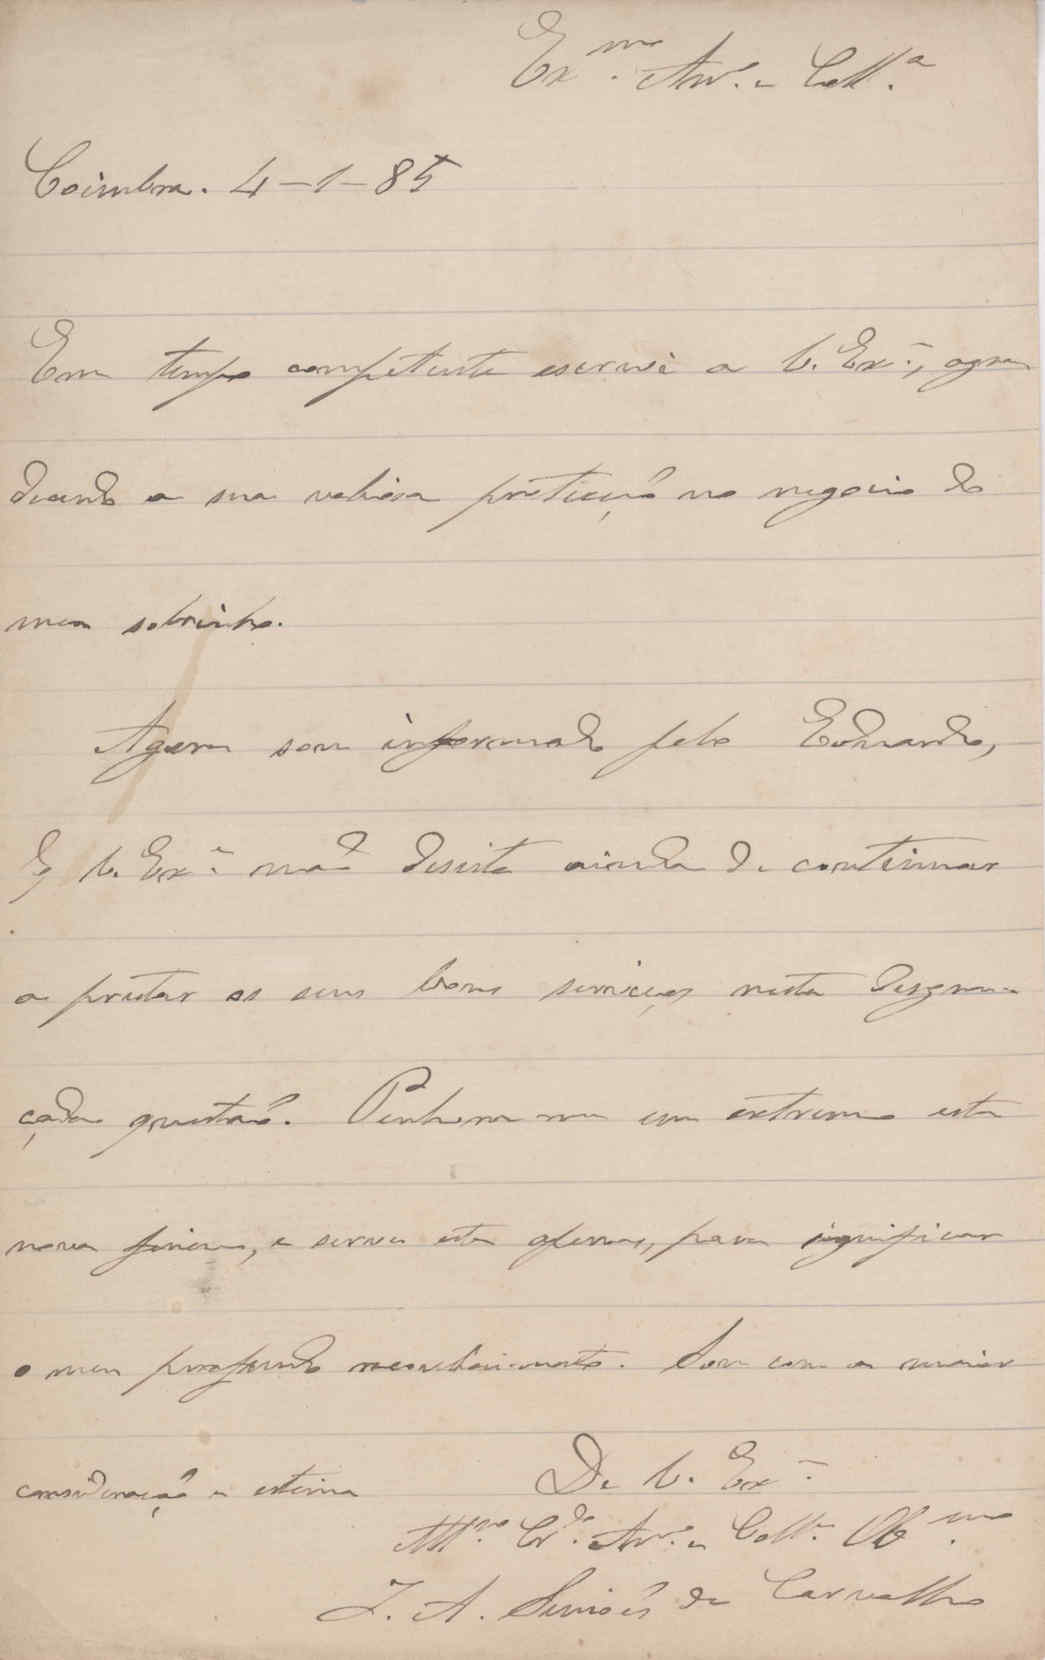 Ex.mo Am.º e Coll.a
Coimbra. 4-1-85
Em tempo competente escrevi a V. Ex.ª, agra
decendo a sua valiosa protecção no negocio do
meu sobrinho.
Agora sou informado pelo Eduardo,
q V. Ex.ª não desiste ainda de continuar
a prestar os seus bons serviços nesta desgra-
çada questão. Penhora-me em extremo esta
nova fineza, e serve esta apenas, para significar
o meu profundo reconhecimento. Sou com a maior
consideração e estima
De V. Ex.ª
Mt.º Cr.do Am.º e Coll.a Ob.mo
J. A. Simões de Carvalho